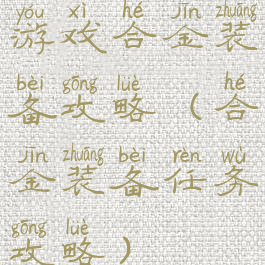 yóu xì hé jīn zhuāng
游戏合金装
bèi gōng lüè hé
备攻略（合
jīn zhuāng bèi rèn wù
金装备任务
gōng lüè
攻略）